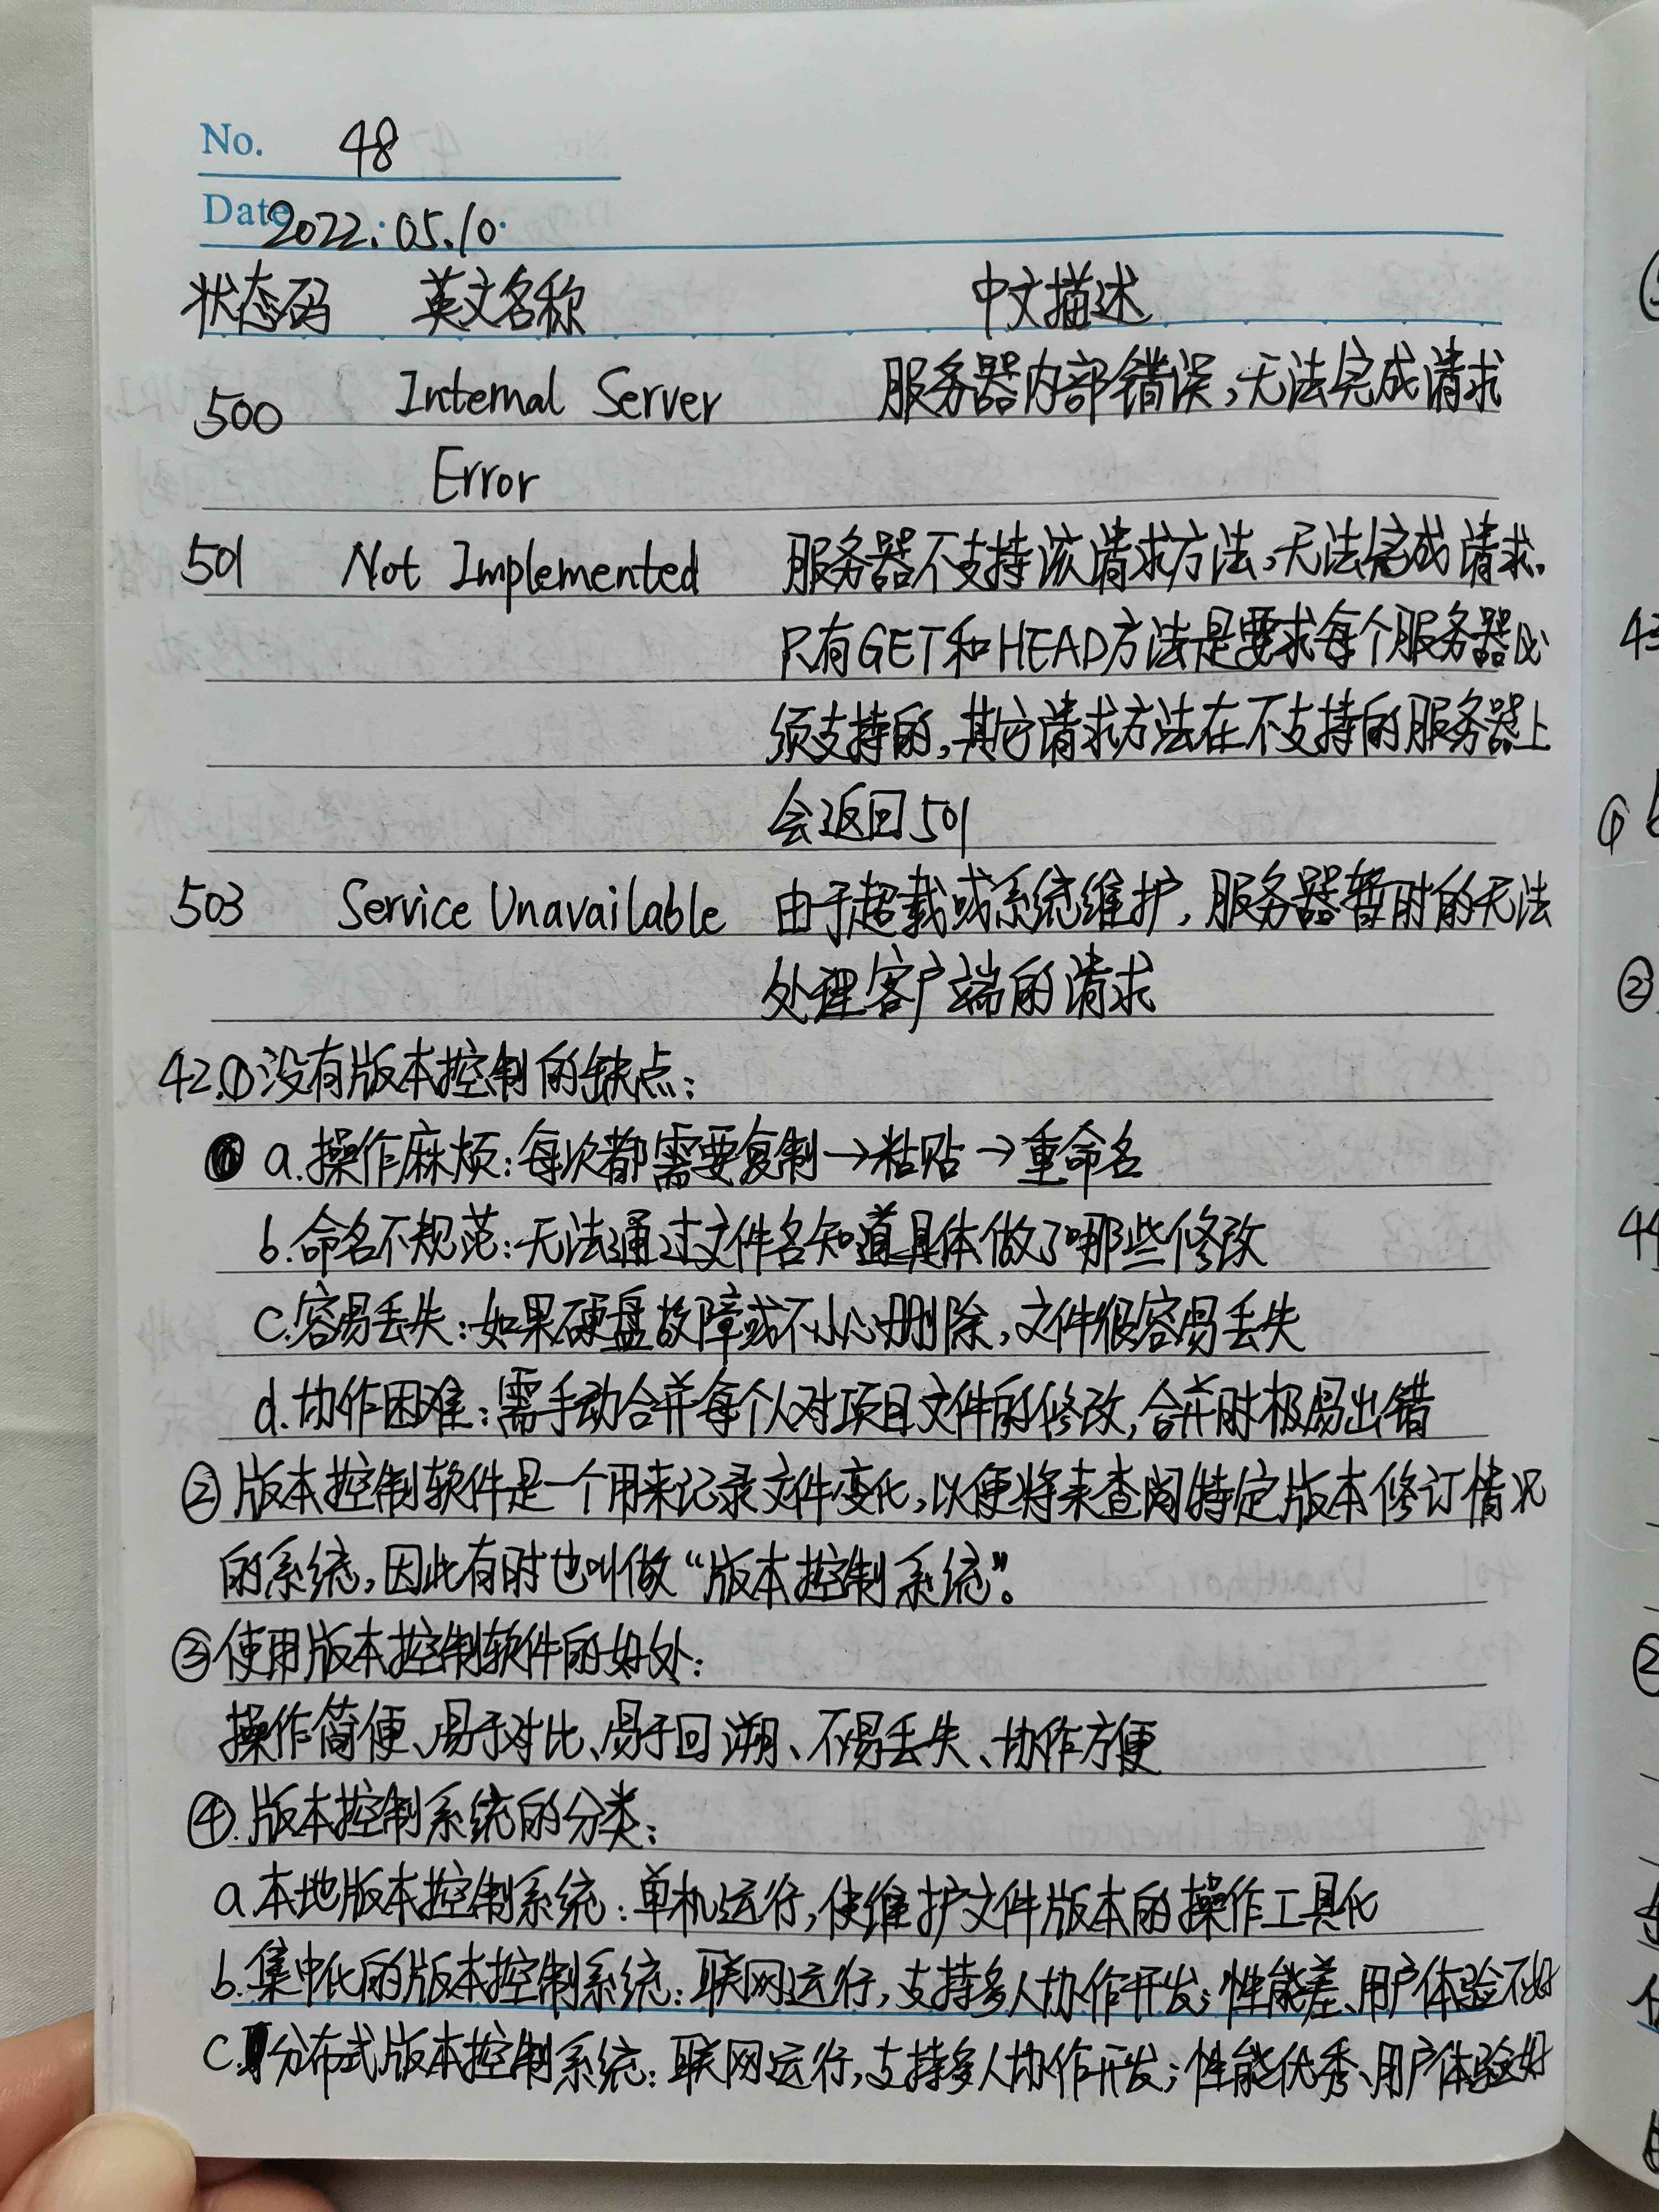 No. 48
Date 2022.05.10.
状态码 英文名称 中文描述
500 Internal Server 服务器内部错误,无法完成请求
Error
501 Not Implemented 服务器不支持该请求方法,无法完成请求.
只有GET和HEAD方法是要求每个服务器必
须支持的,其它请求方法在不支持的服务器上
会返回501
503 Service Unavailable 由于超载或系统维护,服务器暂时的无法
处理客户端的请求
42.①没有版本控制的缺点:
a.操作麻烦:每次都需要复制→粘贴→重命名
b.命名不规范:无法通过文件名知道具体做了哪些修改
c.容易丢失:如果硬盘故障或不小心删除,文件很容易丢失
d.协作困难:需手动合并每个人对项目文件的修改,合并时极易出错
②版本控制软件是一个用来记录文件变化,以便将来查阅特定版本修订情况
的系统,因此有时也叫做“版本控制系统”。
③使用版本控制软件的好处:
操作简便、易于对比、易于回溯、不易丢失、协作方便
④.版本控制系统的分类:
a.本地版本控制系统:单机运行,使维护文件版本的操作工具化
b.集中化的版本控制系统:联网运行,支持多人协作开发;性能差、用户体验不好
c.分布式版本控制系统:联网运行,支持多人协作开发;性能优秀、用户体验好
②
②